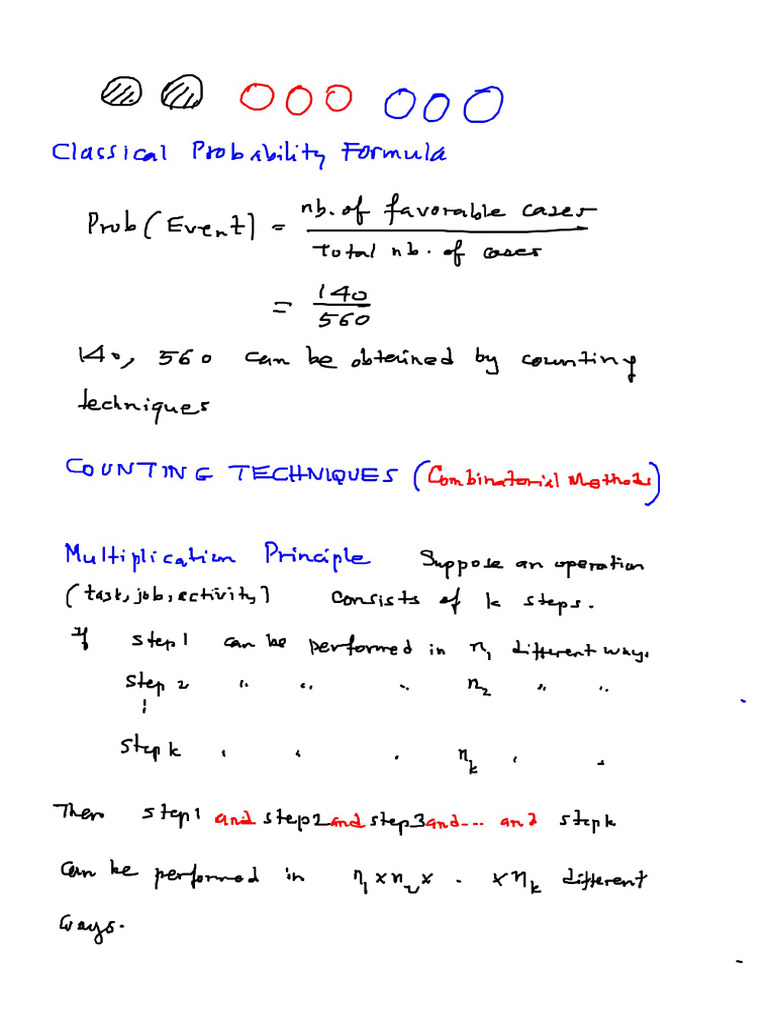 Classical Probability Formula
Prob(Event) = nb. of favorable cases
Total nb. of cases
= 140
560
140, 560 can be obtained by counting
techniques
COUNTING TECHNIQUES (Combinatorial Methods)
Multiplication Principle Suppose an operation
(task, job, activity) consists of k steps.
If step1 can be performed in n₁ different ways.
Step 2 " " " n₂ " "
⋮
Step k ' ' ' n_k ' '
Then step1 and step2 and step3 and --- and step k
can be performed in n₁ x n₂ x . x n_k different
ways.